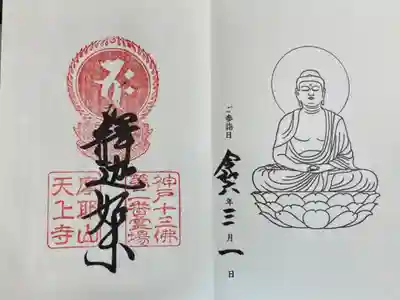 ご参詣日
令和六年三月一日
釋迦如来
神戸十三佛
番霊場
摩耶山
天上寺